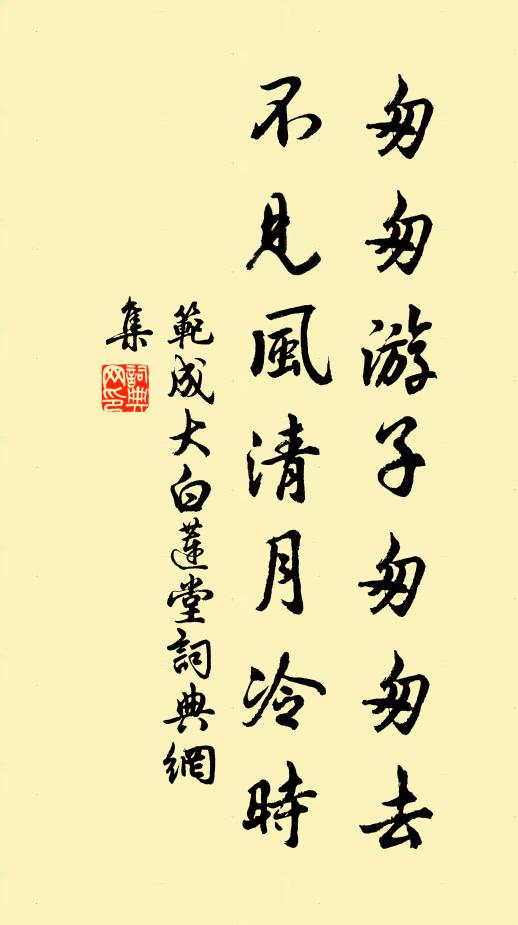 匆匆游子匆匆去
不見風清月冷時
範成大白蓮堂詞典網
集
詞典
网印